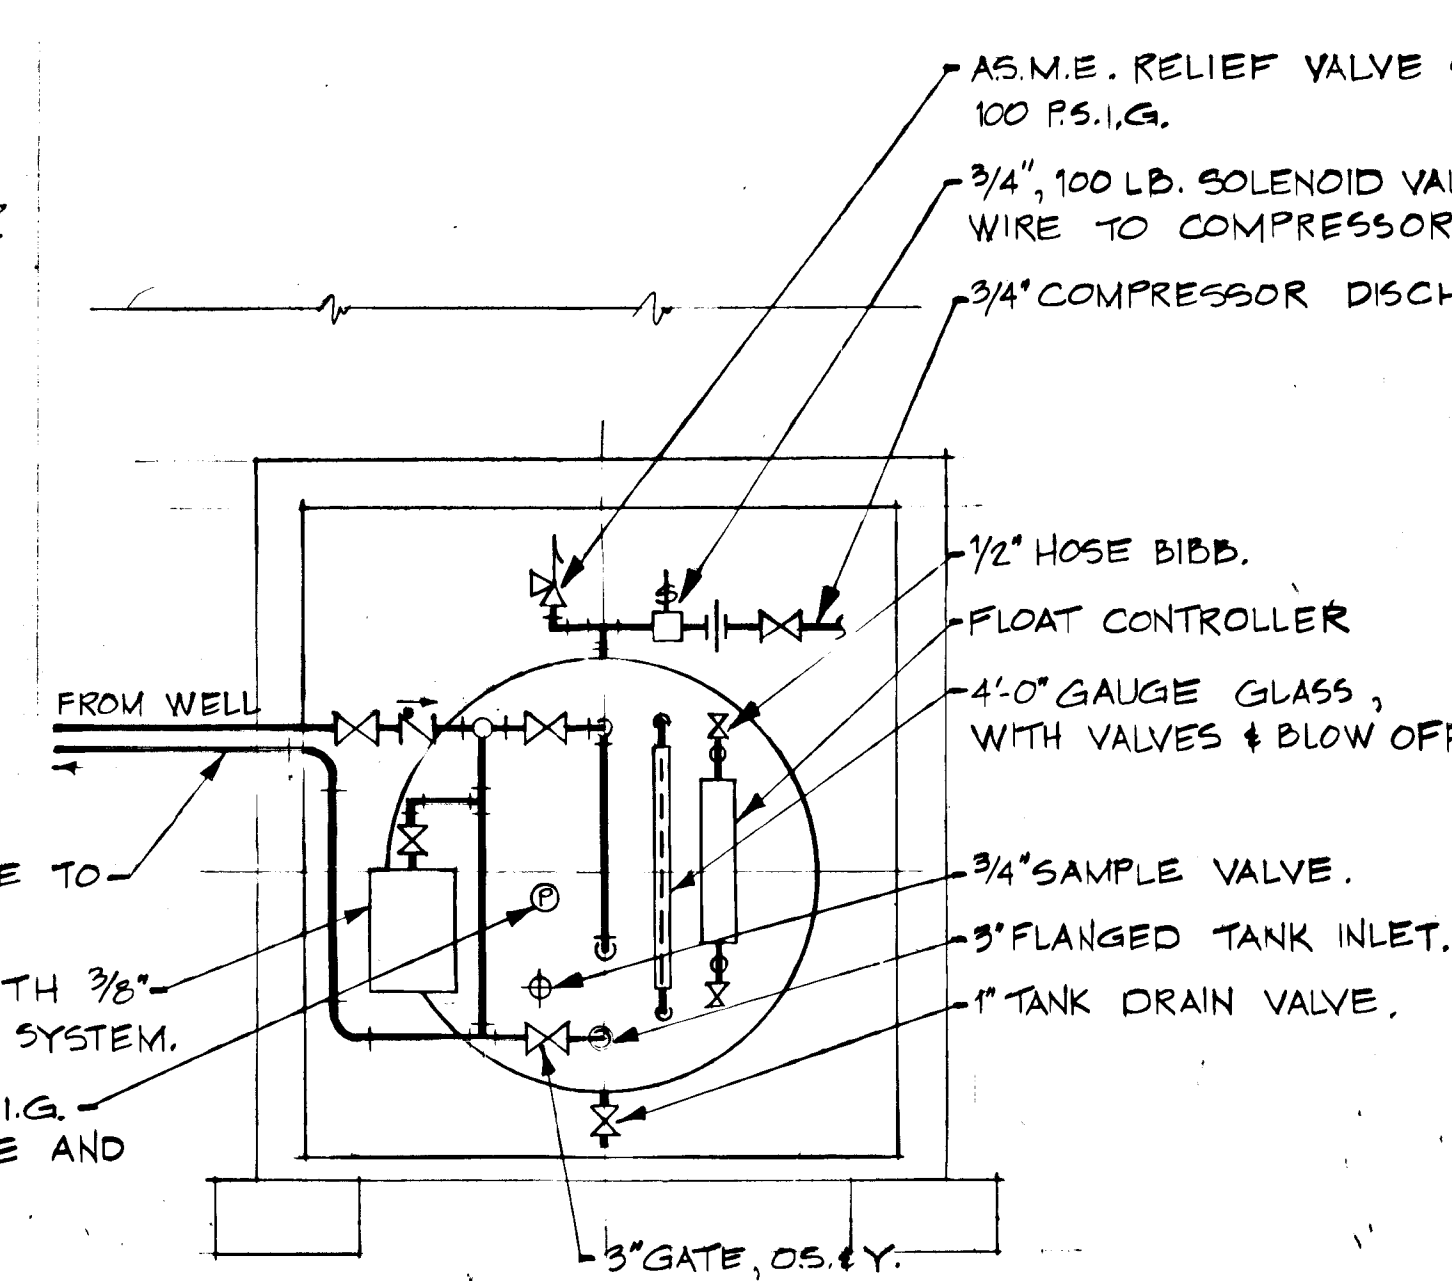 A.S.M.E. RELIEF VALVE
100 P.S.I.G.
3/4", 100 LB. SOLENOID VAL
WIRE TO COMPRESSOR
3/4" COMPRESSOR DISCH
1/2" HOSE BIBB.
FLOAT CONTROLLER
4'-0" GAUGE GLASS,
WITH VALVES & BLOW OFF
3/4" SAMPLE VALVE.
3" FLANGED TANK INLET.
1" TANK DRAIN VALVE.
3" GATE, O.S. & Y.
FROM WELL
E TO
TH 3/8"
SYSTEM.
I.G.
E AND
S
P